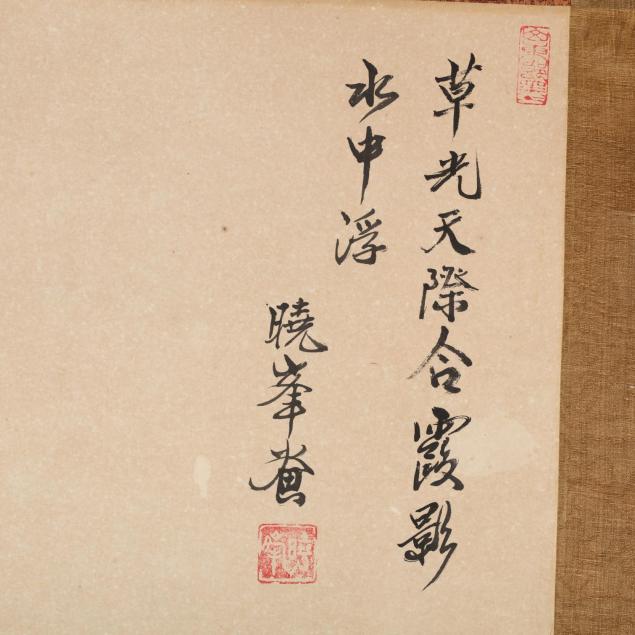 草光天際合霞影
水中浮
曉峯